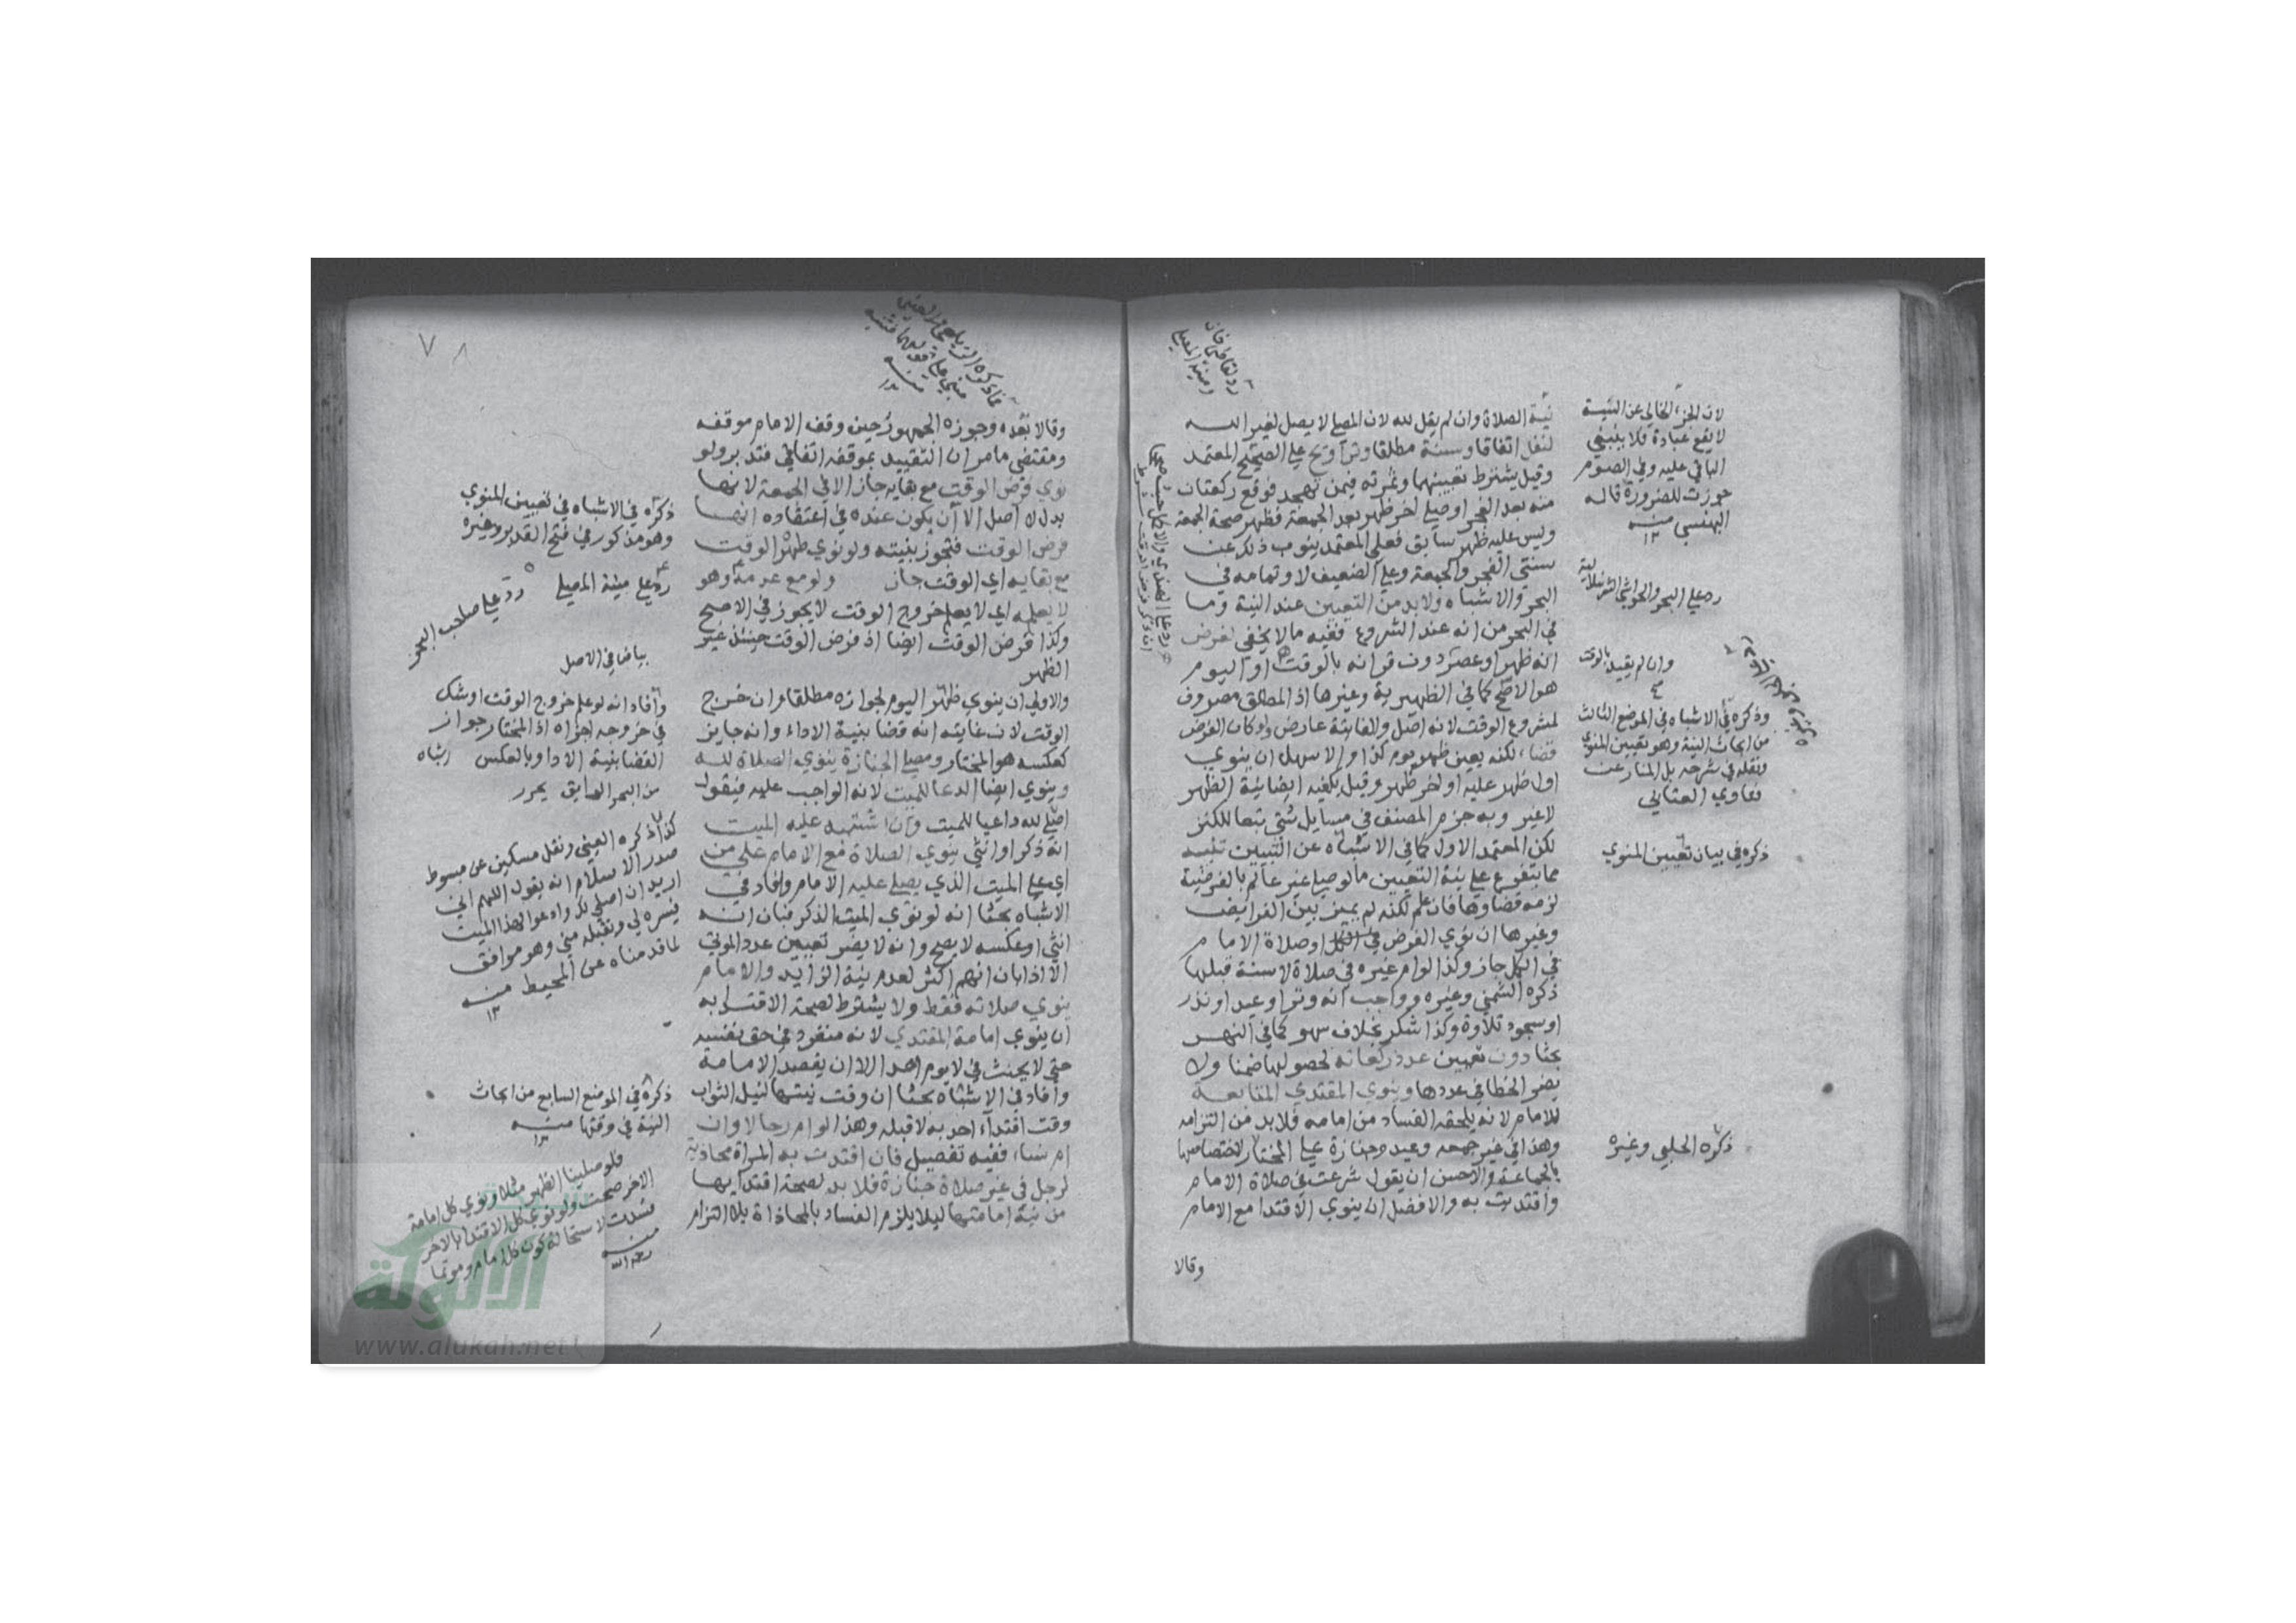 نية الصلاة وان لم يقل لله لان المصلي لا يصل لغير الله
لنفل اتفاقا وسنة مطلقا وتراويح علي الصحيح المعتمد
وقيل يشترط تعيينهما وثمرته فيمن تهجد فوقع ركعتان
منه بعد الفجر او صلي اخر ظهر بعد الجمعة فظهر صحة الجمعة
وليس عليه ظهر سابق فعلي المعتمد ينوب ذلك عن
سنتي الفجر والجمعة وعلي الضعيف لا وتمامه في
البحر والاشباه ولابد من التعيين عند النية وما
في البحر من انه عند الشروع ففيه ما لا يخفي لفرض
انه ظهر او عصر دون قرانه بالوقت او اليوم
هو الاصح كما في الظهيرية وغيرها اذ المطلق مصروف
لمشروع الوقت لانه اصل والفائتة عارض ولو كان الفرض
قضاء لكنه يعين ظهر يوم كذا والاسهل ان ينوي
اول ظهر عليه او اخر ظهر وقيل يكفيه ايضا نية الظهر
لا غير وبه جزم المصنف في مسايل شتي تبعا للكنز
لكن المعتمد الاول كما في الاشباه عن التبيين تنبيه
مما يتفرع علي نية التعيين ما لو صلي غير عالم بالفرضية
لزمه قضاوها فان علم لكنه لم يميز بين الفرايض
وغيرها ان نوي الفرض في الكل او صلاة الامام
في الكل جاز وكذا لو ام غيره في صلاة لا سنة قبلها
ذكره الشمني وغيره وواجب انه وتر او عيد او نذر
او سجود تلاوة وكذا شكر بخلاف سهو كما في النهر
بحثا دون تعيين عدد ركعاته لحصولها ضمنا ولا
يضر الخطا في عددها وينوي المقتدي المتابعة
للامام لانه يلحقه الفساد من امامه فلا بد من التزامه
وهذا في غير جمعه وعيد وجنازة علي المختار لاختصاصها
بالجماعة والاحسن ان يقول شرعت في صلاة الامام
واقتديت به والافضل ان ينوي الاقتدا مع الامام
وقالا
لان الجزء الخالي عن النية
لا يقع عبادة فلا ينبني
الباقي عليه وفي الصوم
جوزت للضرورة قاله
البهنسي منه
رد علي البحر والحواشي الشرنبلالية
وان لم يقيد بالوقت
صح
وذكره في الاشباه في الموضع الثالث
من ابحاث النية وهو تعيين المنوي
ونقله في شرحه بل المنار عن
فتاوي العتابي
ذكره في بيان تعيين المنوي
ذكره الحلبي وغيره
رد لقاضي خان
ومنية المصلي
وقالا بعده وجوزه الجمهور حين وقف الامام موقفه
ومقتضي ما مر ان التقييد بموقفه اتفاقي فتدبر ولو
نوي فرض الوقت مع بقايه جاز الا في الجمعة لانها
بدل لا اصل الا ان يكون عنده في اعتقاده انها
فرض الوقت فتجوز بنيته ولو نوي ظهر الوقت
مع بقايه اي الوقت جاز ولو مع عدمه وهو
لا يعلمه اي لا يعلم خروج الوقت لا يجوز في الاصح
وكذا فرض الوقت ايضا اذ فرض الوقت حينئذ غير
الظهر
والاولي ان ينوي ظهر اليوم لجوازه مطلقا وان خرج
الوقت لان غايته انه قضا بنية الاداء وانه جايز
كعكسه هو المختار ومصلي الجنازة ينوي الصلاة لله
وينوي ايضا الدعا للميت لانه الواجب عليه فيقول
اصلي لله داعيا للميت وان اشتبه عليه الميت
انه ذكر او انثي ينوي الصلاة مع الامام علي من
اي علي الميت الذي يصلي عليه الامام وافاد في
الاشباه بحثا انه لو نوي الميت الذكر فبان انه
انثي او عكسه لا يصح وانه لا يضر تعيين عدد الموتي
الا اذا بان انهم اكثر لعدم نية الزايد والامام
ينوي صلاته فقط ولا يشترط لصحة الاقتدا به
ان ينوي امامة المقتدي لانه منفرد في حق نفسه
حتي لا يحنث في لا يوم احدا الا ان يقصد الامامة
وافاد في الاشباه بحثا ان وقت نيتها لنيل الثواب
وقت اقتداء احد به لا قبله وهذا لو ام رجالا وان
ام نساء ففيه تفصيل فان اقتدت به المراة محاذية
لرجل في غير صلاة جنازة فلا بد لصحة اقتدايها
من نية امامتها ليلا يلزم الفساد بالمحاذاة بلا التزام
ذكره في الاشباه في تعيين المنوي
وهو مذكور في فتح القدير وغيره
رد علي منية المصلي
رد علي صاحب البحر
بياض في الاصل
وافاد انه لو علم خروج الوقت او شك
في خروجه اجزاه اذ المختار جواز
القضا بنية الادا وبالعكس اشباه
من البحر السابق يحرر
كذا ذكره العيني ونقل مسكين عن مبسوط
صدر الاسلام انه يقول اللهم اني
اريد ان اصلي لك وادعو لهذا الميت
فيسره لي وتقبله مني وهو موافق
لما قدمناه عن المحيط منه
ذكره في الموضع السابع من ابحاث
النية في وقتها منه
فلو صلينا الظهر مثلا ونوي كل امامة
الاخر صحت ولو نوي كل الاقتدا بالاخر
فسدت لاستحالة كون كل امام وموتما
منه
رحمه الله
الألوكة
www.alukah.net